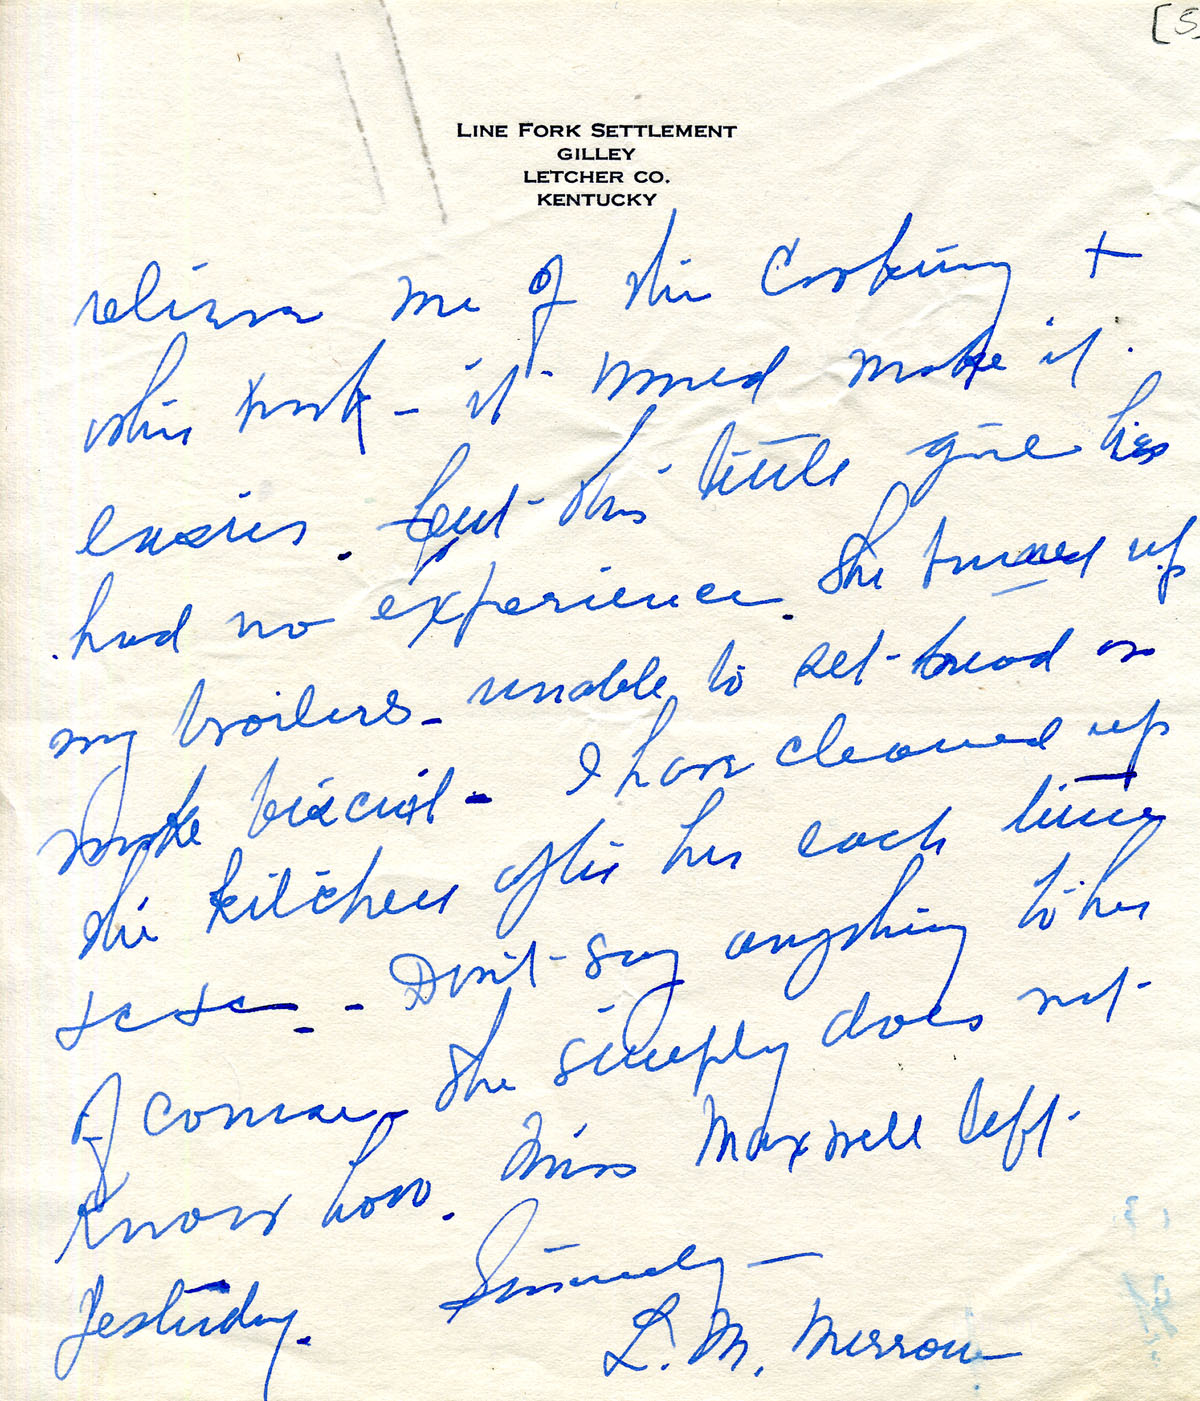 [5
LINE FORK SETTLEMENT
GILLEY
LETCHER CO.
KENTUCKY
relieve me of the cooking +
this work – it would make it
easier. but this little girl has
had no experience. She turned up
my broilers – unable to set bread or
make biscuit – I have cleaned up
the kitchen after her each time
+c +c – – Don't say anything to her
of course – She simply does not
know how. Miss Maxwell left
yesterday. Sincerely –
L. M. Merrow